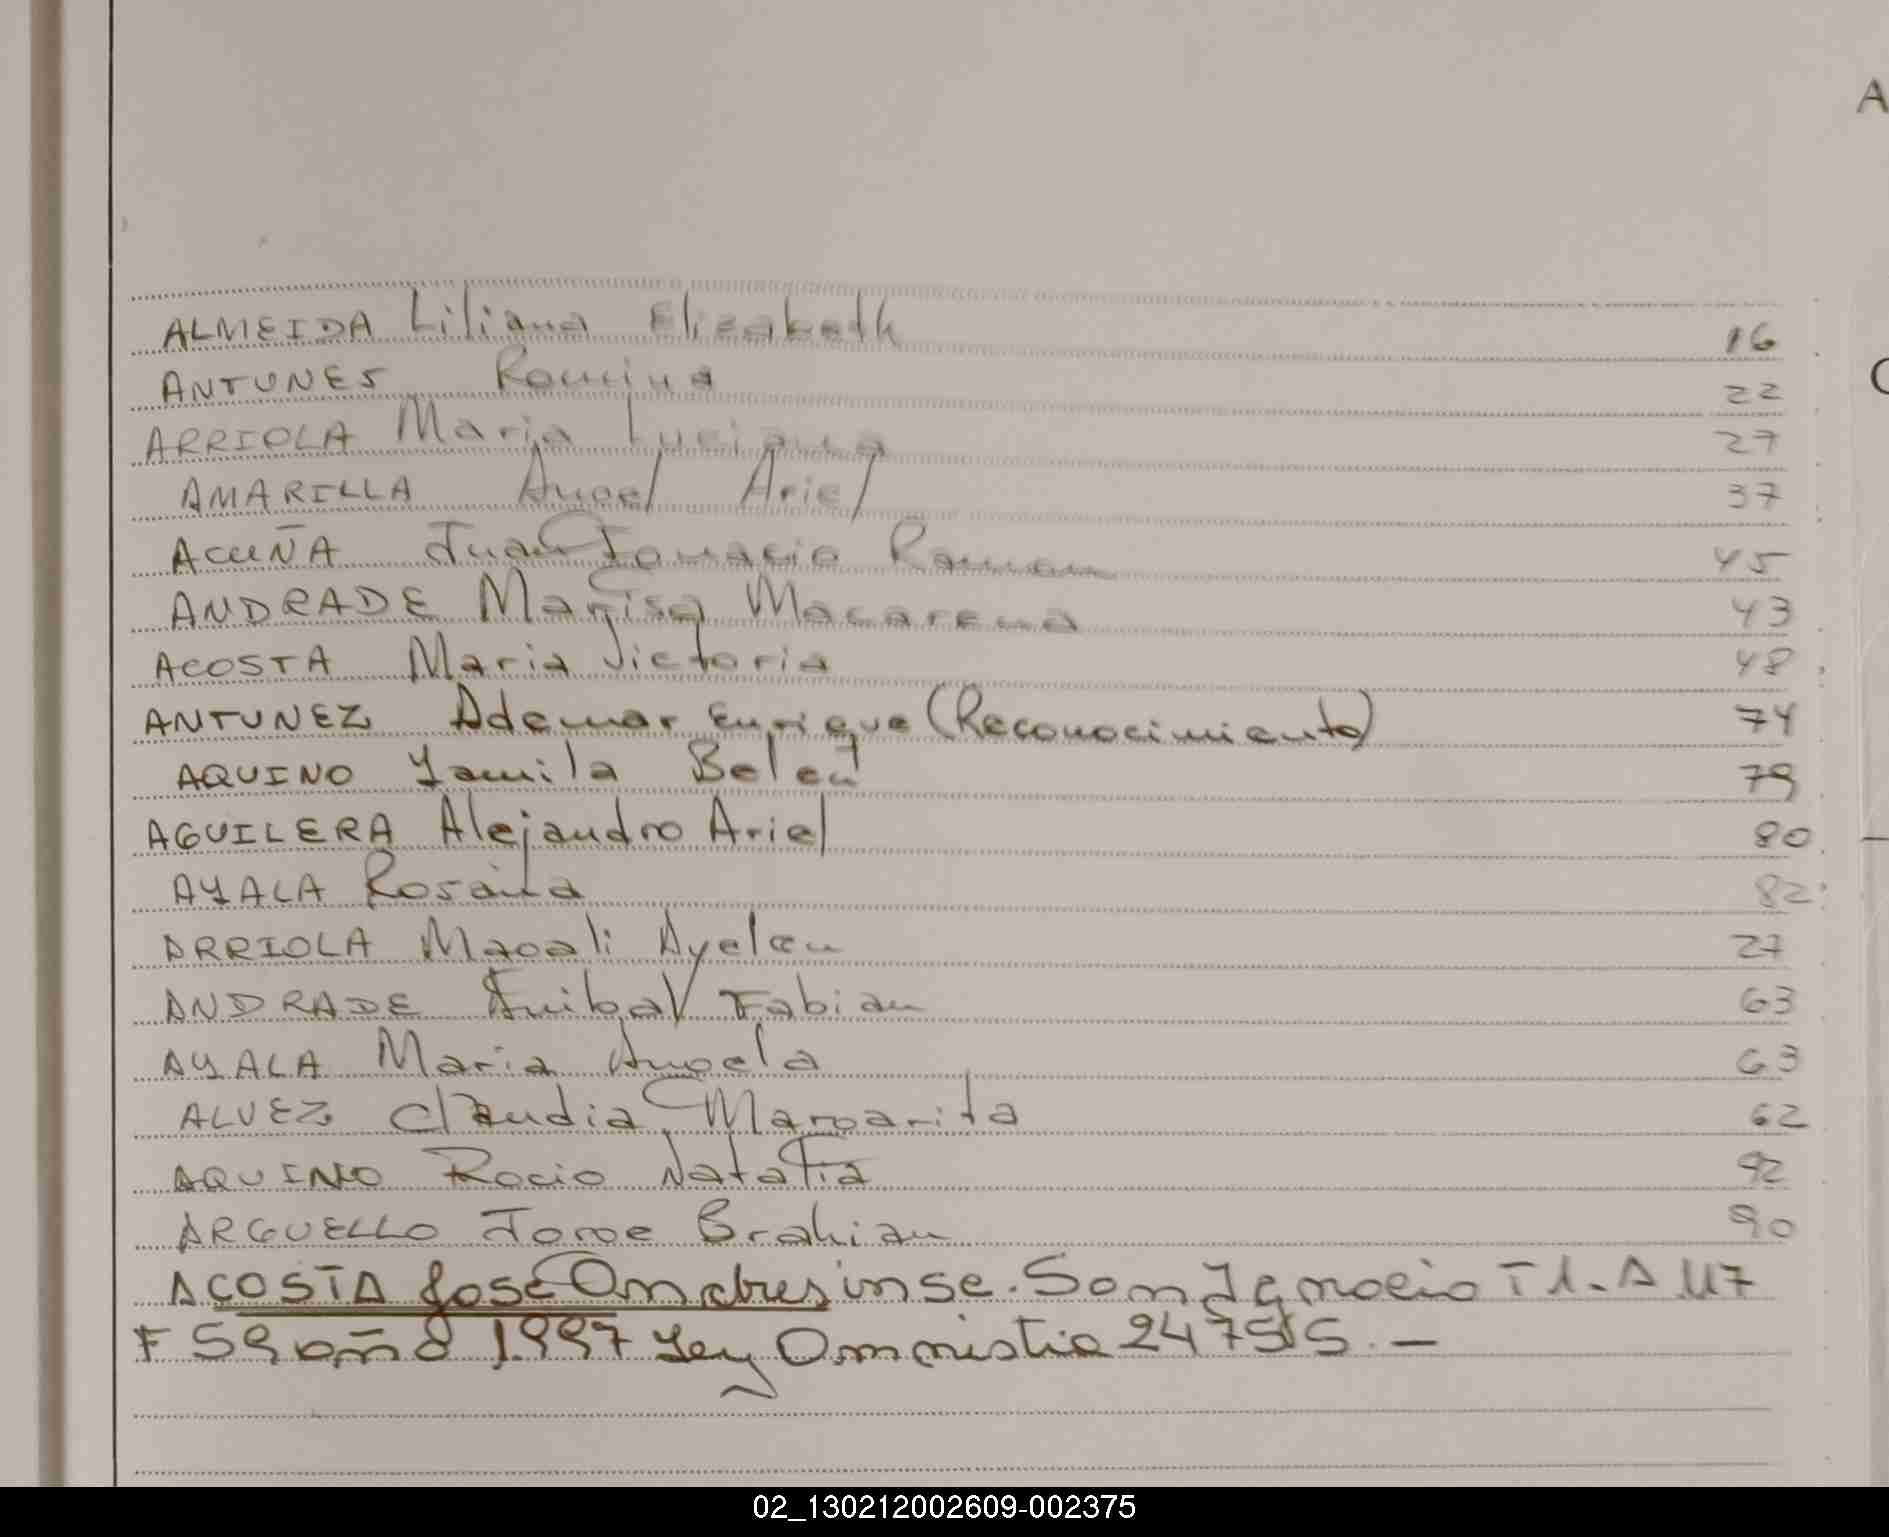 A
ALMEIDA Liliana Elizabeth 16
ANTUNES Romina 22
C
ARRIOLA Maria Luciana 27
AMARILLA Angel Ariel 37
ACUÑA Juan Ignacio Ramon 45
ANDRADE Marisa Macarena 43
ACOSTA Maria Victoria 48
ANTUNEZ Ademar Enrique (Reconocimiento) 74
AQUINO Yamila Belen 79
AGUILERA Alejandro Ariel 80
AYALA Rosana 82
ARRIOLA Magali Ayelen 27
ANDRADE Anibal Fabian 63
AYALA Maria Angela 63
ALVEZ Claudia Margarita 62
AQUINO Rocio Natalia 92
ARGUELLO Jorge Brahian 90
ACOSTA José Andres inse. San Ignacio T 1.A 117
F 59 año 1997 Ley Amnistia 24755.—
02_130212002609-002375